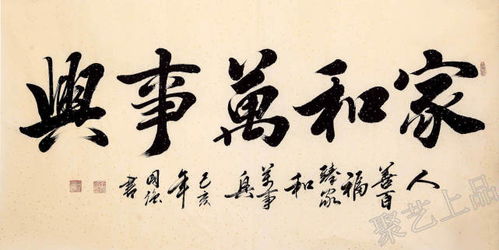 家和萬事興
人善百福臻家和萬事興
己亥年
國強書
聚艺上品